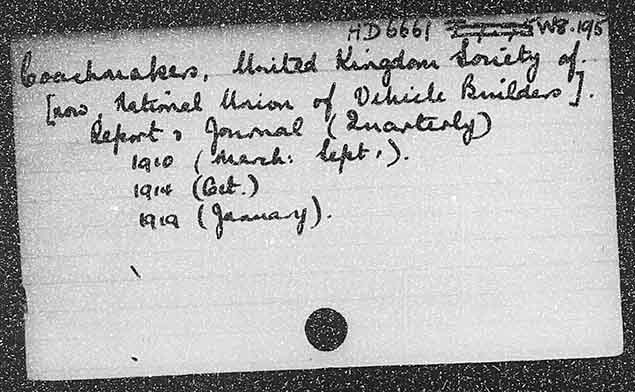 HD6661 W8.195
Coachmakers, United Kingdom Society of.
[now National Union of Vehicle Builders].
Report & Journal (Quarterly)
1910 (March: Sept.).
1914 (Oct.)
1919 (January).